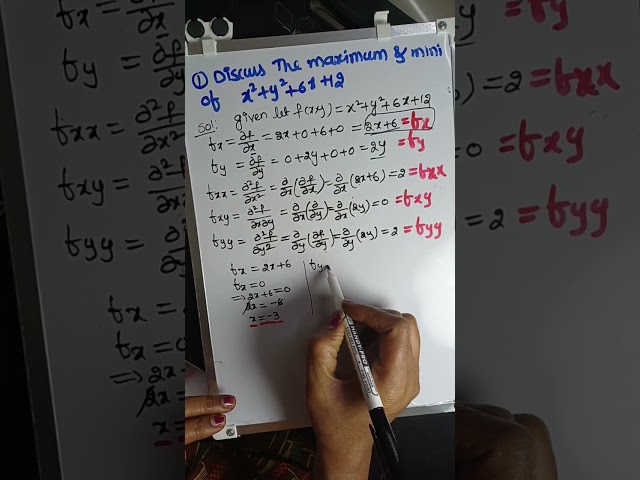 ① Discuss The maximum & mini
of x²+y²+6x+12
Sol: given let f(x,y) = x²+y²+6x+12
fx = ∂f/∂x = 2x+0+6+0 = 2x+6 = fx
fy = ∂f/∂y = 0+2y+0+0 = 2y = fy
fxx = ∂²f/∂x² = ∂/∂x(∂f/∂x) = ∂/∂x(2x+6) = 2 = fxx
fxy = ∂²f/∂x∂y = ∂/∂x(∂/∂y) = ∂/∂x(2y) = 0 = fxy
fyy = ∂²f/∂y² = ∂/∂y(∂f/∂y) = ∂/∂y(2y) = 2 = fyy
fx = 2x+6
fx = 0
⇒ 2x+6 = 0
2x = -6
x = -3
fy